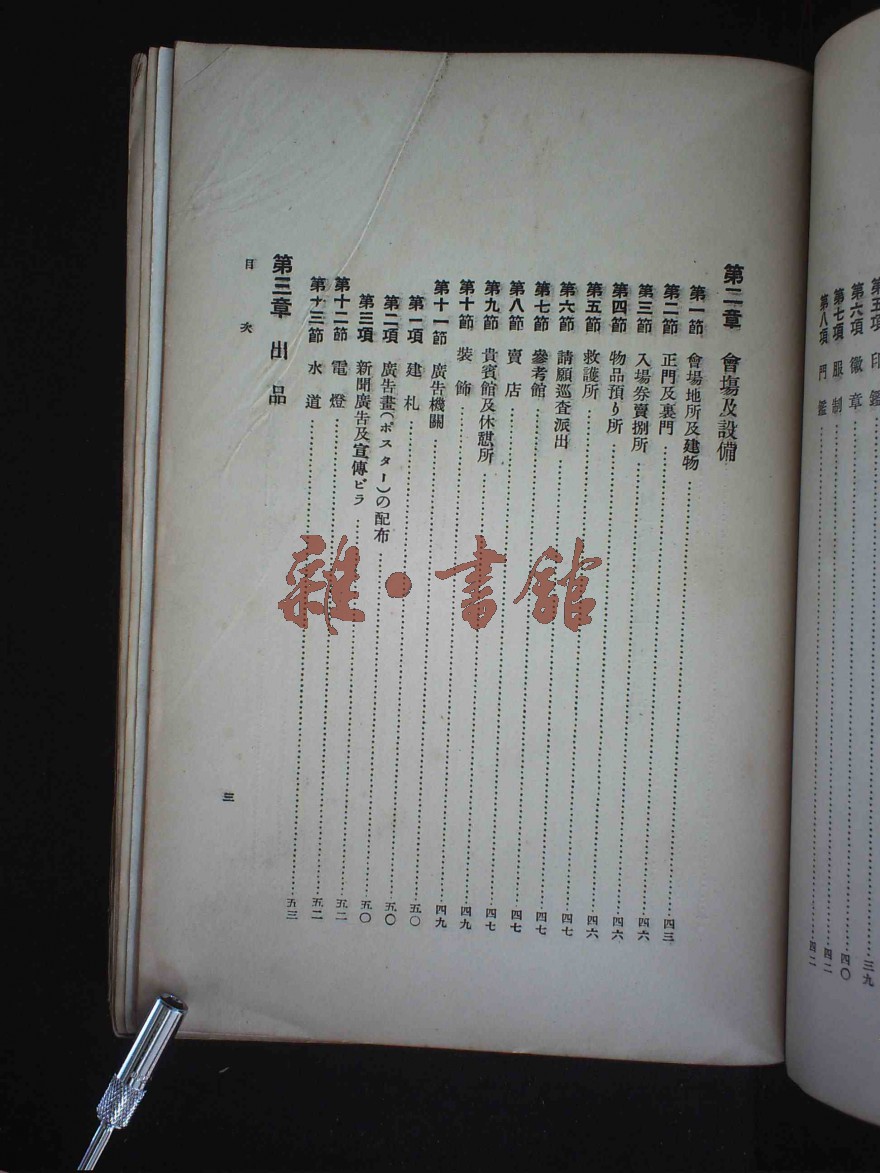 第五項 印鑑 三九
第六項 徽章 四〇
第七項 服制 四二
第八項 門鑑 四二
第二章 會場及設備
第一節 會場地所及建物 四三
第二節 正門及裏門 四六
第三節 入場券賣捌所 四六
第四節 物品預り所 四六
第五節 救護所 四七
第六節 請願巡査派出 四七
第七節 參考館 四七
第八節 賣店 四七
第九節 貴賓館及休憩所 四七
第十節 裝飾 四九
第十一節 廣告機關 四九
第一項 建札 五〇
第二項 廣告畫(ポスター)の配布 五〇
第三項 新聞廣告及宣傳ビラ 五〇
第十二節 電燈 五二
第十三節 水道 五二
第三章 出品 五三
目次
三
雜·書館